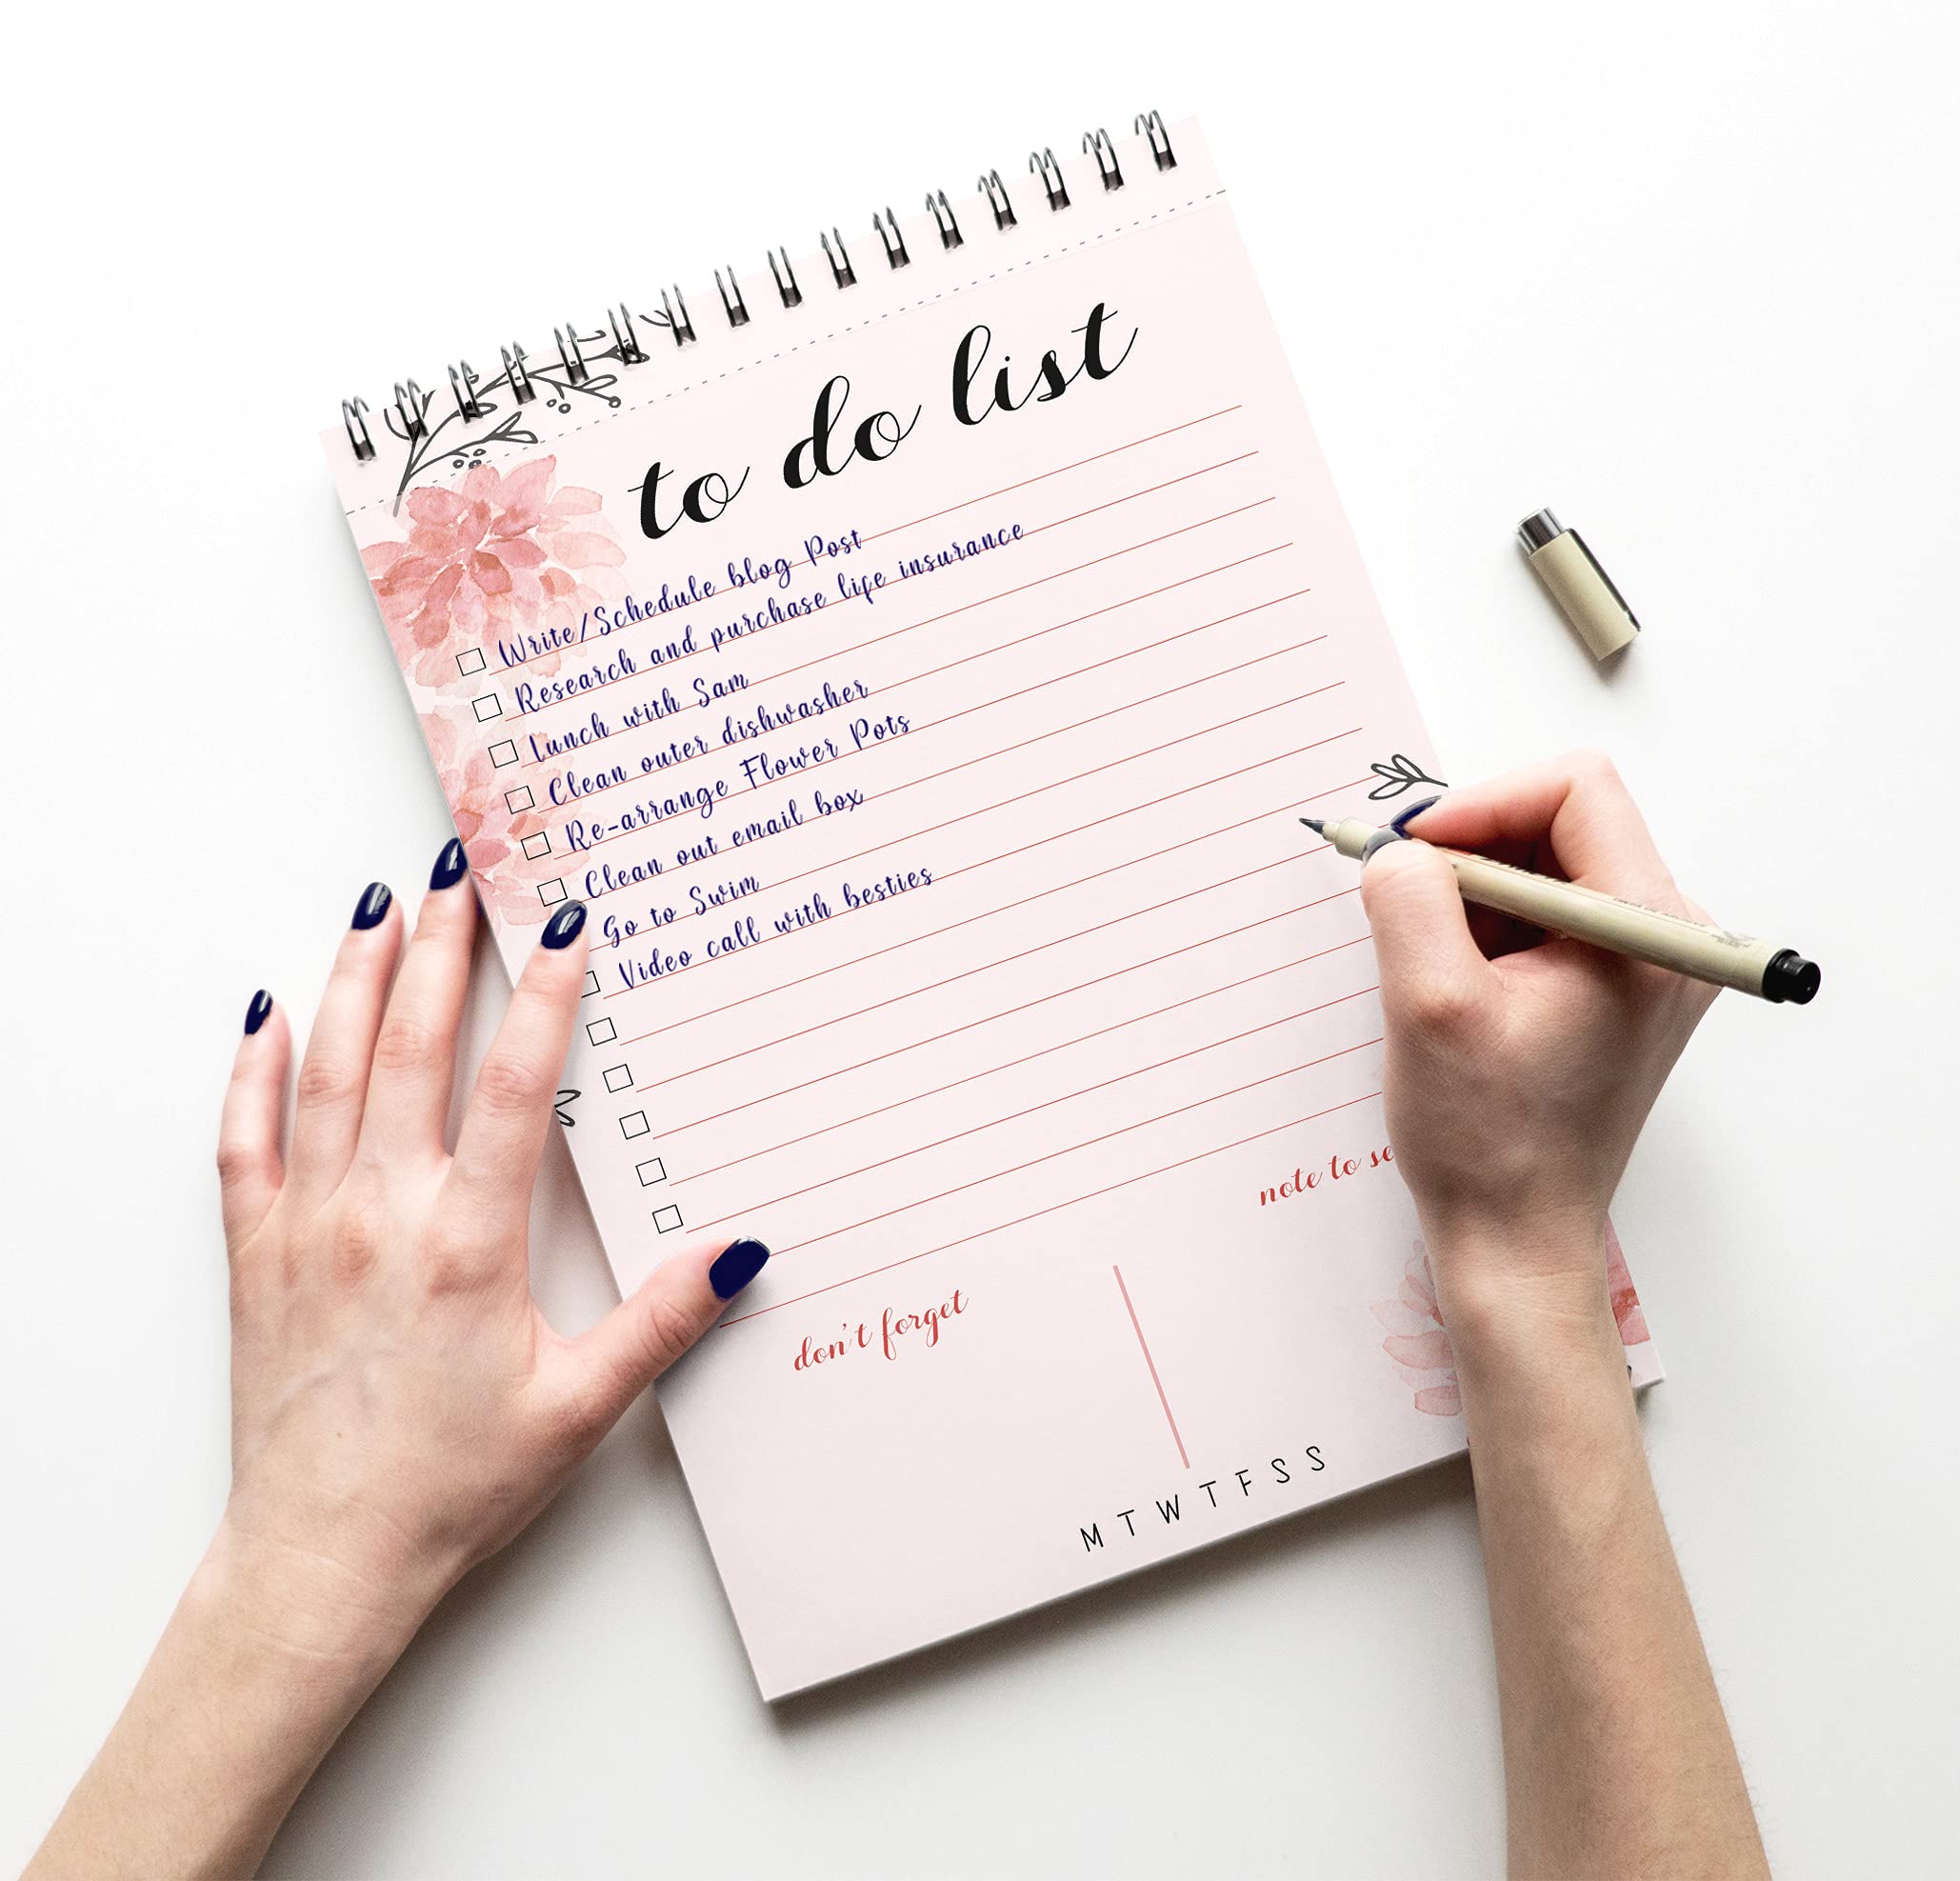 to do list
Write/Schedule blog Post
Research and purchase life insurance
Lunch with Sam
Clean outer dishwasher
Re-arrange Flower Pots
Clean out email box
Go to Swim
Video call with besties
note to se
don't forget
M T W T F S S